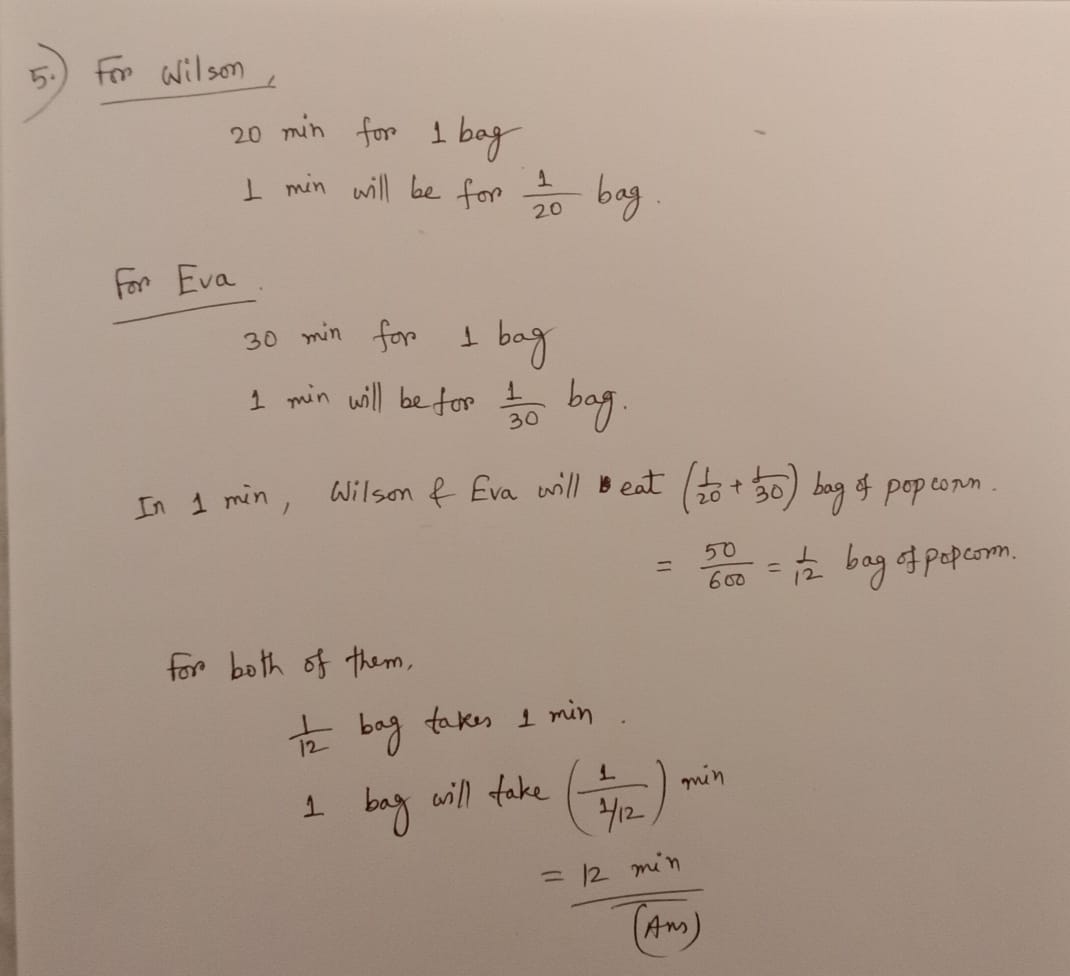 5.) For Wilson,
20 min for 1 bag
1 min will be for 1/20 bag.
For Eva.
30 min for 1 bag
1 min will be for 1/30 bag.
In 1 min, Wilson & Eva will eat (1/20 + 1/30) bag of popcorn.
= 50/600 = 1/12 bag of popcorn.
For both of them,
1/12 bag takes 1 min.
1 bag will take (1/(1/12)) min
= 12 min
(Ans)